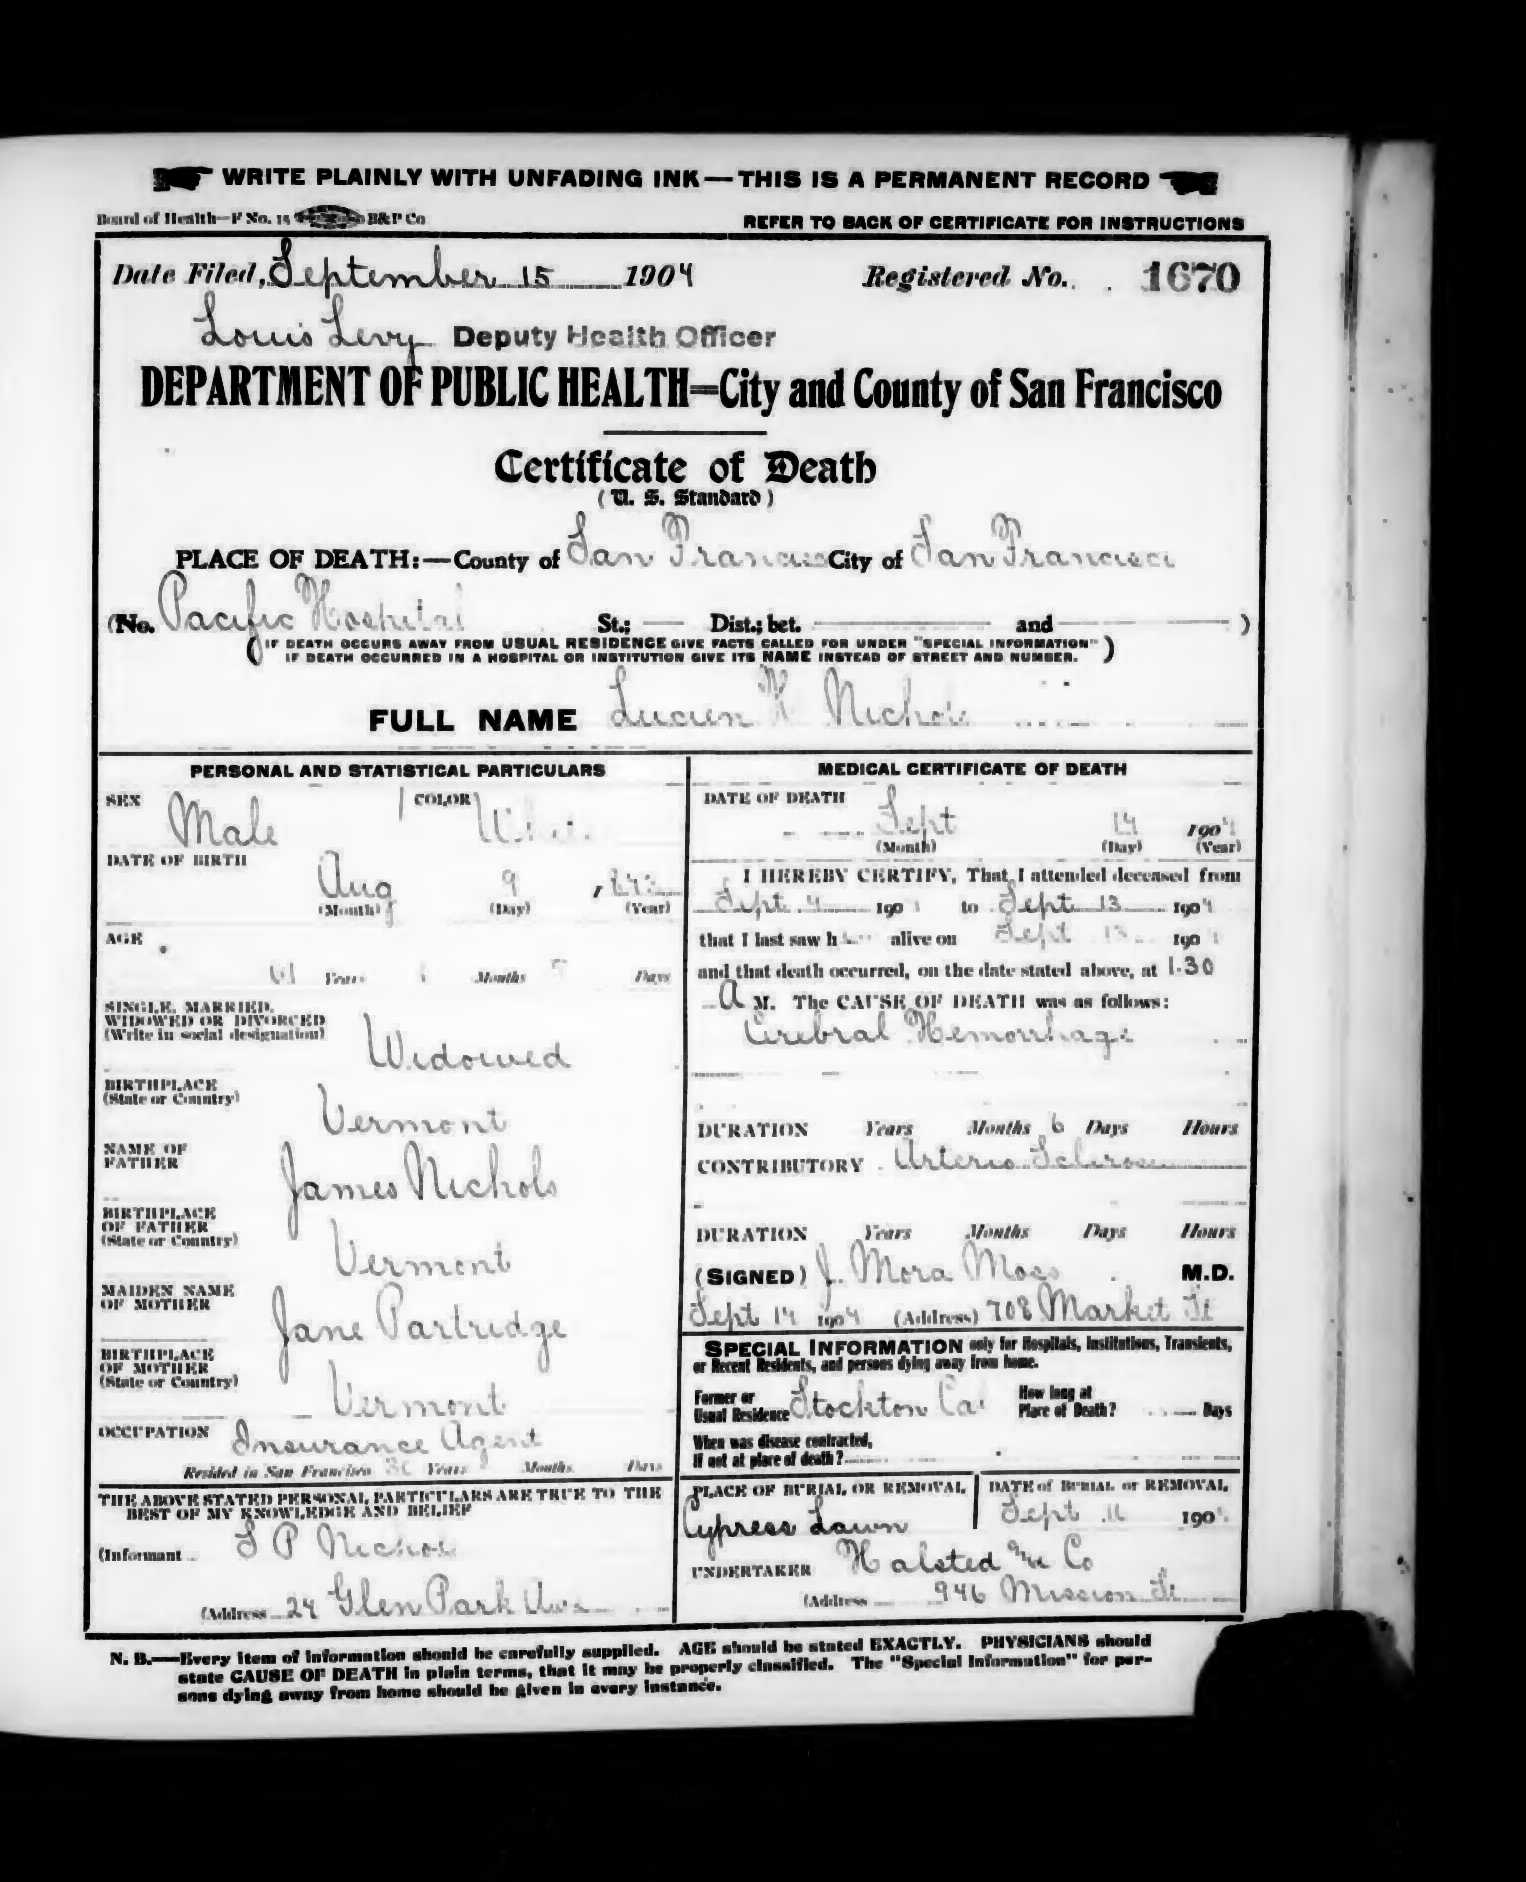 WRITE PLAINLY WITH UNFADING INK — THIS IS A PERMANENT RECORD
Board of Health—F No. 15 B&P Co
REFER TO BACK OF CERTIFICATE FOR INSTRUCTIONS
Date Filed, September 15 1904 Registered No. 1670
Louis Levy Deputy Health Officer
DEPARTMENT OF PUBLIC HEALTH=City and County of San Francisco
Certificate of Death
( U. S. Standard )
PLACE OF DEATH:—County of San Francisco City of San Francisco
(No. Pacific Hospital St.; Dist.; bet. and )
(IF DEATH OCCURS AWAY FROM USUAL RESIDENCE GIVE FACTS CALLED FOR UNDER "SPECIAL INFORMATION"
IF DEATH OCCURRED IN A HOSPITAL OR INSTITUTION GIVE ITS NAME INSTEAD OF STREET AND NUMBER.)
FULL NAME Lucien H Nichols
PERSONAL AND STATISTICAL PARTICULARS
SEX Male COLOR White
DATE OF BIRTH
Aug 9
(Month) (Day) (Year)
AGE
61 Years 1 Months 5 Days
SINGLE, MARRIED,
WIDOWED OR DIVORCED
(Write in social designation)
Widowed
BIRTHPLACE
(State or Country)
Vermont
NAME OF
FATHER
James Nichols
BIRTHPLACE
OF FATHER
(State or Country)
Vermont
MAIDEN NAME
OF MOTHER
Jane Partridge
BIRTHPLACE
OF MOTHER
(State or Country)
Vermont
OCCUPATION Insurance Agent
Resided in San Francisco Years Months Days
THE ABOVE STATED PERSONAL PARTICULARS ARE TRUE TO THE
BEST OF MY KNOWLEDGE AND BELIEF
(Informant S P Nichols
(Address 24 Glen Park Ave
MEDICAL CERTIFICATE OF DEATH
DATE OF DEATH
Sept 14 1904
(Month) (Day) (Year)
I HEREBY CERTIFY, That I attended deceased from
Sept 4 190 to Sept 13 1904
that I last saw h alive on Sept 13 190
and that death occurred, on the date stated above, at 1.30
A M. The CAUSE OF DEATH was as follows:
Cerebral Hemorrhage
DURATION Years Months 6 Days Hours
CONTRIBUTORY Arterio Sclerosis
DURATION Years Months Days Hours
(SIGNED) J. Mora Moss M.D.
Sept 14 1904 (Address) 708 Market St
SPECIAL INFORMATION only for Hospitals, Institutions, Transients,
or Recent Residents, and persons dying away from home.
Former or
Usual Residence Stockton Cal
How long at
Place of Death? Days
When was disease contracted,
If not at place of death?
PLACE OF BURIAL OR REMOVAL
Cypress Lawn
DATE of BURIAL or REMOVAL
Sept 16 190
UNDERTAKER Halsted and Co
(Address 946 Mission St
N. B.—Every item of information should be carefully supplied. AGE should be stated EXACTLY. PHYSICIANS should
state CAUSE OF DEATH in plain terms, that it may be properly classified. The "Special Information" for per-
sons dying away from home should be given in every instance.